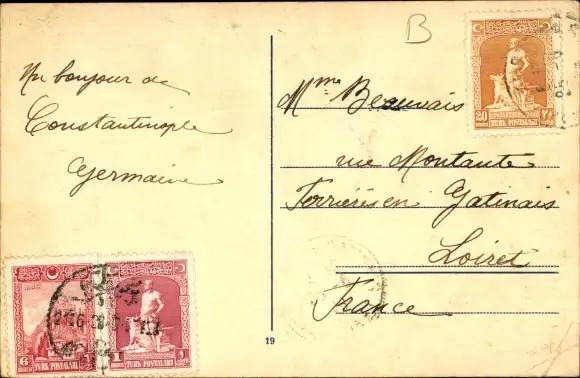 B
Un bonjour de
Constantinople
Germaine
Mme Beauvais
rue Montante
Ferrières en Gatinais
Loiret
France
20 ٢٠
TÜRK POSTALARI
6
TÜRK POSTALARI
1 ١
TÜRK POSTALARI
19